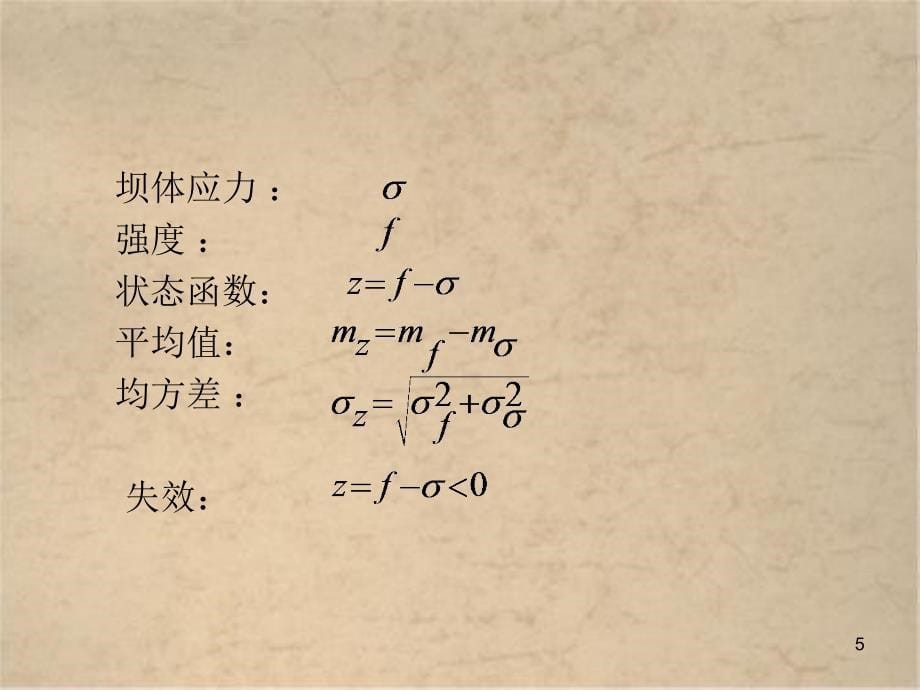 坝体应力 ： σ
强度 ： f
状态函数： z=f−σ
平均值： m_z=m_f−m_σ
均方差 ： σ_z=√(σ_f^2+σ_σ^2)
失效： z=f−σ<0
5